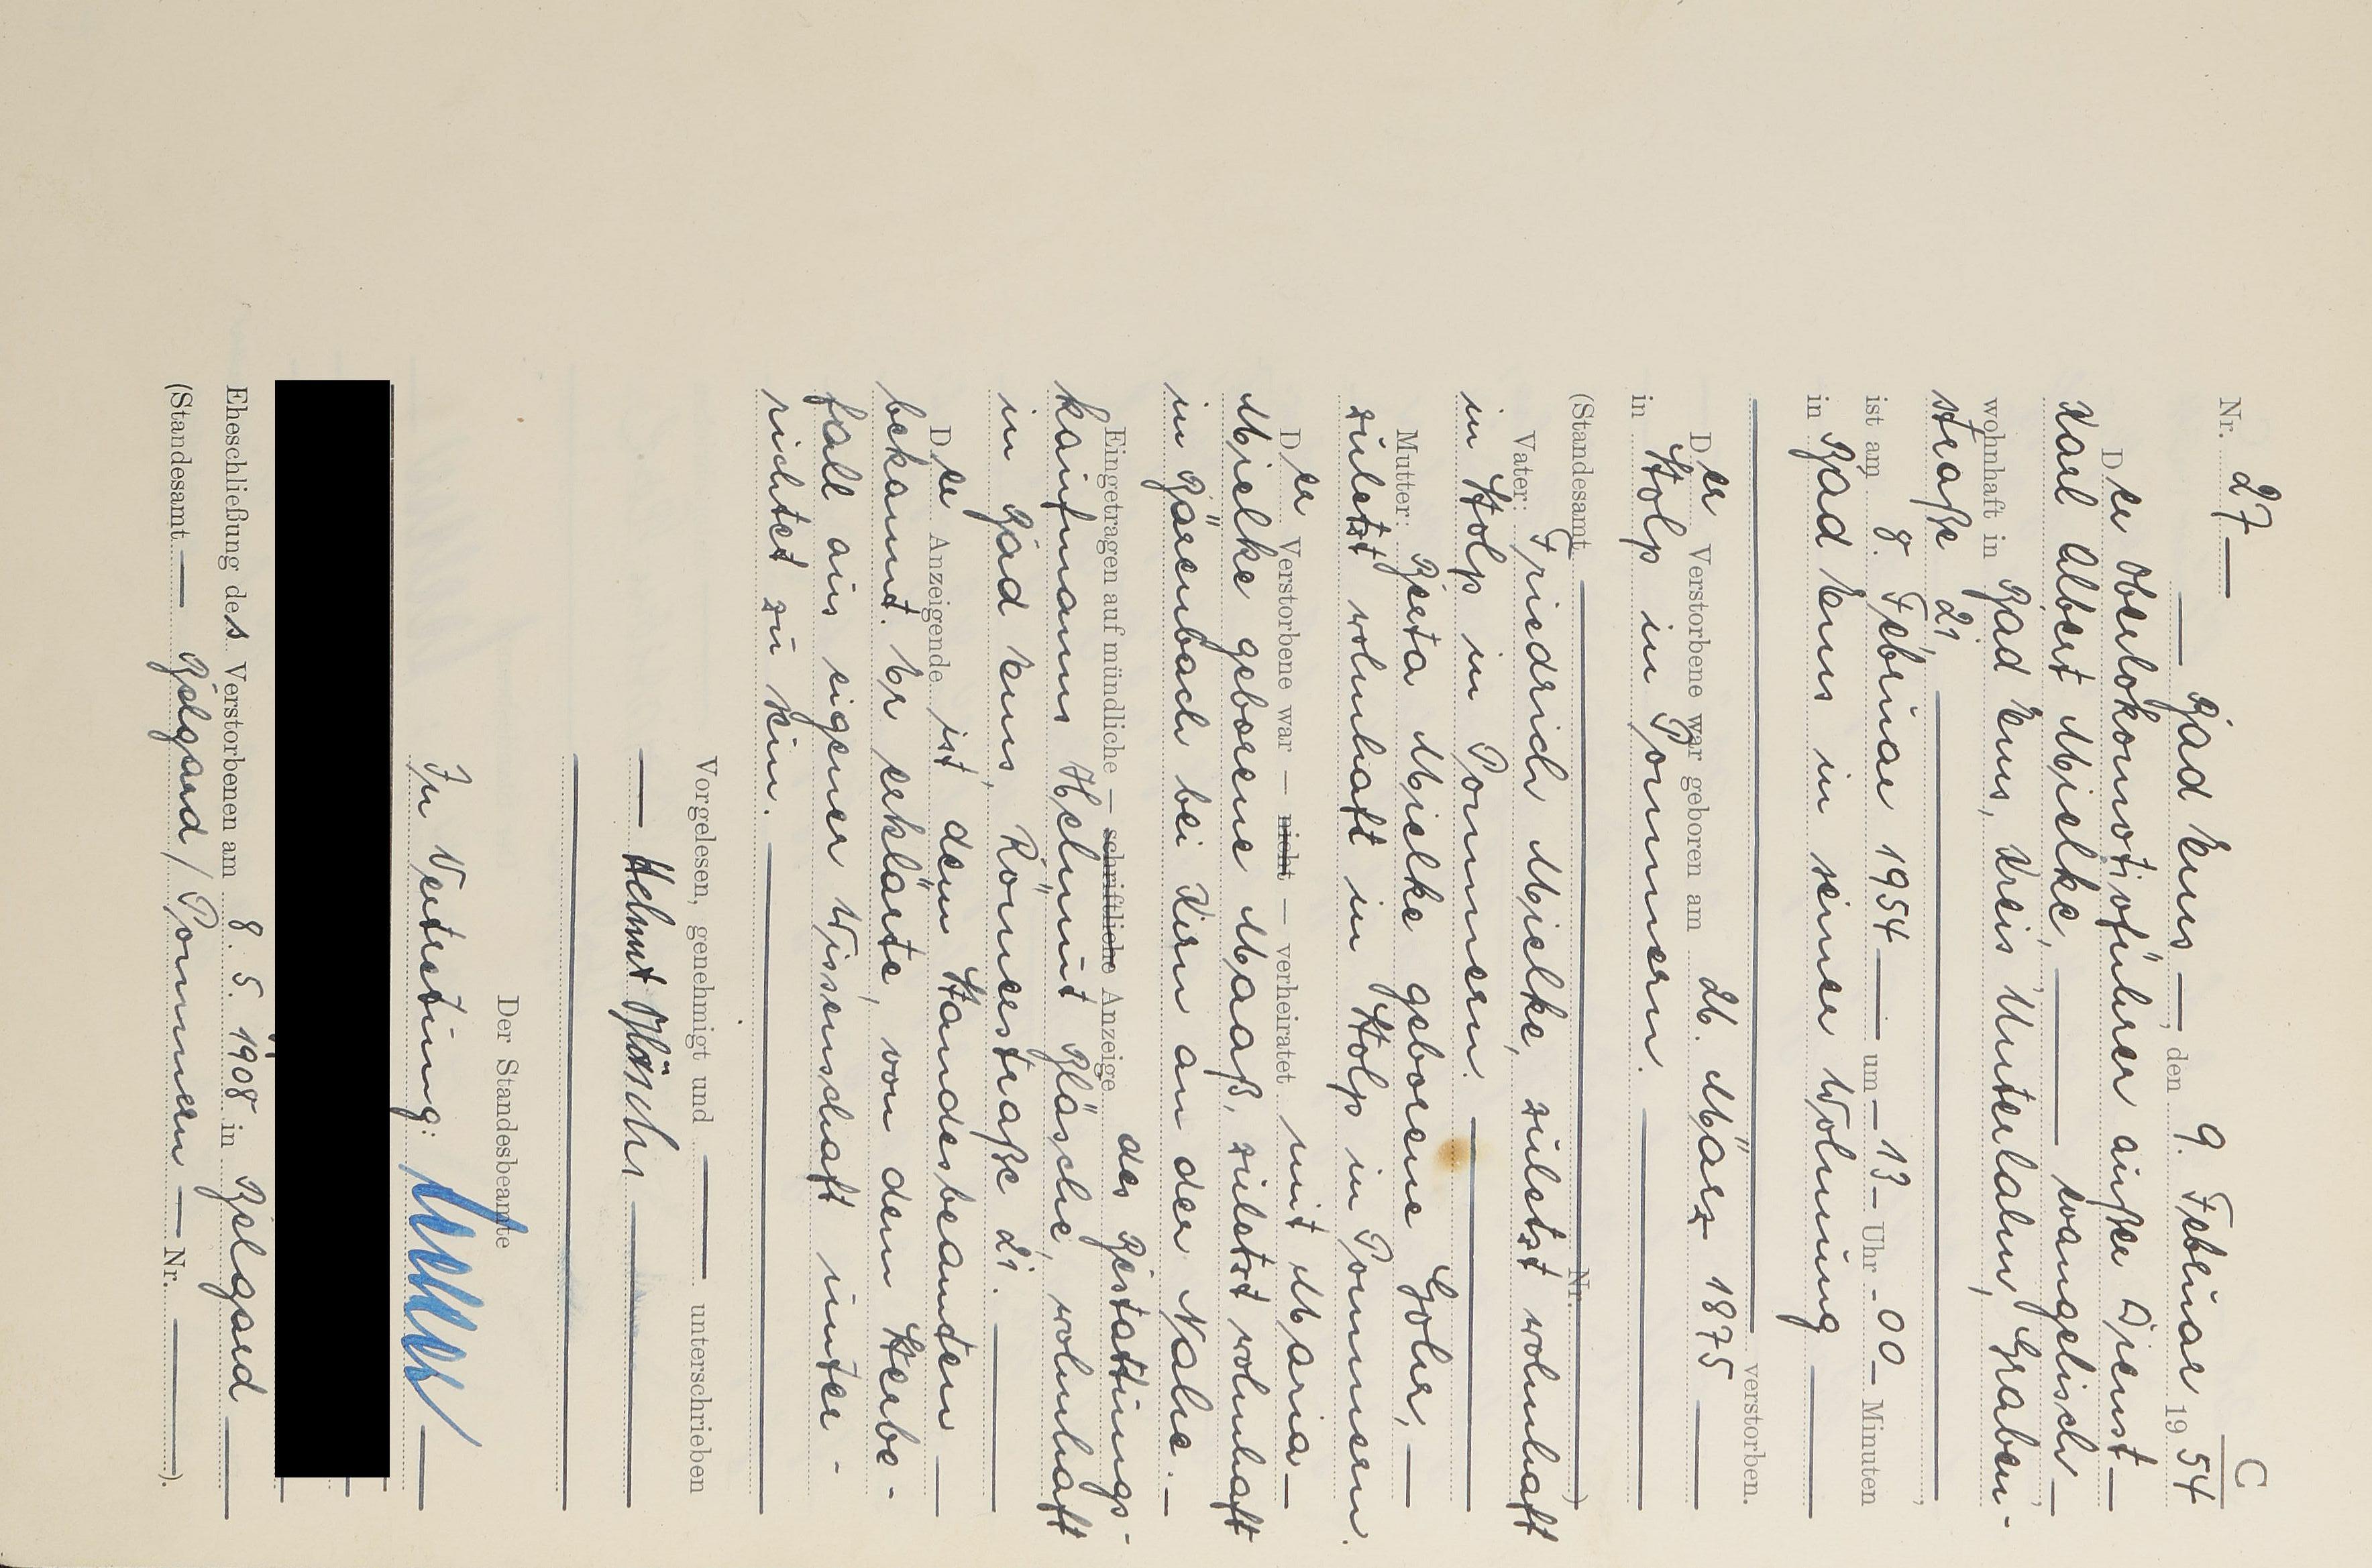 C
Nr. 27 —
— Bad Ems —, den 9. Februar 1954
Der Oberlokomotivführer außer Dienst —
Karl Albert Mielke, — evangelisch —,
wohnhaft in Bad Ems, Kreis Unterlahn, Graben-
straße 21, —,
ist am 8. Februar 1954 — um — 13 — Uhr - 00 — Minuten
in Bad Ems in seiner Wohnung —
— verstorben.
Der Verstorbene war geboren am 26. März 1875 —
in Stolp in Pommern. —
(Standesamt — Nr. —)
Vater: Friedrich Mielke, zuletzt wohnhaft
in Stolp in Pommern. —
Mutter: Berta Mielke geborene Gohr, —
zuletzt wohnhaft in Stolp in Pommern.
Der Verstorbene war — nicht — verheiratet mit Maria —
Mielke geborene Maaß, zuletzt wohnhaft
in Bärenbach bei Kirn an der Nahe. —
Eingetragen auf mündliche — schriftliche Anzeige des Bestattungs-
kaufmanns Helmut Gläsche, wohnhaft
in Bad Ems, Römerstraße 21. —
Der Anzeigende ist dem Standesbeamten —
bekannt. Er erklärte, von dem Sterbe-
fall aus eigener Wissenschaft unter-
richtet zu sein. —
Vorgelesen, genehmigt und — unterschrieben
— Helmut Gläsche —
Der Standesbeamte
In Vertretung: —
Eheschließung des Verstorbenen am 8. 5. 1908 in Belgard —
(Standesamt — Belgard / Pommern — Nr. —).